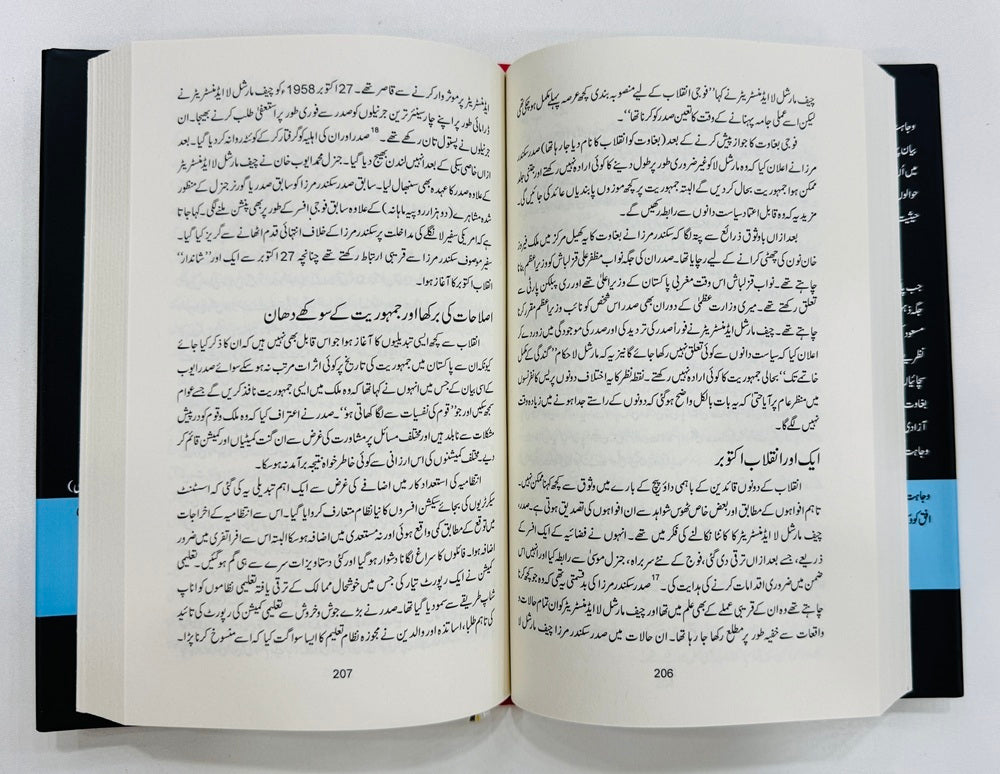 چیف مارشل لا ایڈمنسٹریٹر نے کہا ’’فوجی انقلاب کے لیے منصوبہ بندی کچھ عرصہ پہلے مکمل ہو چکی تھی
لیکن اسے عملی جامہ پہنانے کے وقت کا تعین صدر کو کرنا تھا‘‘۔
فوجی بغاوت کا جواز پیش کرنے کے بعد (بغاوت کو انقلاب کا نام دیا جا رہا تھا) صدر سکندر
مرزا نے اعلان کیا کہ وہ مارشل لا کو غیر ضروری طور پر طول دینے کا کوئی ارادہ نہیں رکھتے اور جتنی جلد
ممکن ہوا جمہوریت بحال کر دیں گے البتہ جمہوریت پر کچھ موزوں پابندیاں عائد کی جائیں گی۔
مزید یہ کہ وہ قابل اعتماد سیاست دانوں سے رابطہ رکھیں گے۔
بعد ازاں باوثوق ذرائع سے پتہ لگا کہ سکندر مرزا نے بغاوت کا یہ کھیل مرکز میں ملک فیروز
خان نون کی چھٹی کرانے کے لیے رچایا تھا۔ صدر ان کی جگہ نواب مظفر علی قزلباش کو وزیر اعظم بنانا
چاہتے تھے۔ نواب قزلباش اس وقت مغربی پاکستان کے وزیر اعلیٰ تھے اور ری پبلکن پارٹی سے
تعلق رکھتے تھے۔ میری وزارت عظمیٰ کے دوران بھی صدر اس شخص کو نائب وزیر اعظم مقرر کرنا
چاہتے تھے۔ چیف مارشل لا ایڈمنسٹریٹر نے فوراً صدر کی تردید کی اور صدر کی موجودگی میں زور دے کر
اعلان کیا کہ سیاست دانوں سے کوئی تعلق نہیں رکھا جائے گا نیز یہ کہ مارشل لا حکام ’’گندگی کے مکمل
خاتمے تک‘‘ بحالی جمہوریت کا کوئی ارادہ نہیں رکھتے۔ نقطہ نظر کا یہ اختلاف دونوں پریس کانفرنسوں
میں منظر عام پر آیا حتیٰ کہ یہ بات بالکل واضح ہو گئی کہ دونوں کے راستے جدا ہونے میں زیادہ وقت
نہیں لگے گا۔
ایک اور انقلاب اکتوبر
انقلاب کے دونوں قائدین کے باہمی داؤ پیچ کے بارے میں وثوق سے کچھ کہنا ممکن نہیں۔
تاہم افواہوں کے مطابق اور بعض خاص ٹھوس شواہد سے ان افواہوں کی تصدیق ہوتی ہے۔ صدر،
چیف مارشل لا ایڈمنسٹریٹر کا کانٹا نکالنے کی فکر میں تھے۔ انہوں نے فضائیہ کے ایک افسر کے
ذریعے، جسے بعد ازاں ترقی دی گئی، فوج کے نئے سربراہ، جنرل موسیٰ سے رابطہ کیا اور انہیں اس
ضمن میں ضروری اقدامات کرنے کی ہدایت کی۔17 صدر سکندر مرزا کی بدقسمتی یہ تھی کہ وہ جو کچھ کرنا
چاہتے تھے وہ ان کے قریبی عملے کے بھی علم میں تھا اور چیف مارشل لا ایڈمنسٹریٹر کو ان تمام حالات و
واقعات سے خفیہ طور پر مطلع رکھا جا رہا تھا۔ ان حالات میں صدر سکندر مرزا چیف مارشل لا
206
ایڈمنسٹریٹر پر موثر وار کرنے سے قاصر تھے۔ 27 اکتوبر 1958ء کو چیف مارشل لا ایڈمنسٹریٹر نے
ڈرامائی طور پر اپنے چار سینئر ترین جرنیلوں کو صدر سے فوری طور پر استعفیٰ طلب کرنے بھیجا۔ ان
جرنیلوں نے پستول تان رکھے تھے۔18 صدر اور ان کی اہلیہ کو گرفتار کر کے کوئٹہ روانہ کر دیا گیا۔ بعد
ازاں خاصی سبکی کے بعد انہیں لندن بھیج دیا گیا۔ جنرل محمد ایوب خان نے چیف مارشل لا ایڈمنسٹریٹر
کے علاوہ صدر کا عہدہ بھی سنبھال لیا۔ سابق صدر سکندر مرزا کو سابق صدر یا گورنر جنرل کے منظور
شدہ مشاہرے (دو ہزار روپیہ ماہانہ) کے علاوہ سابق فوجی افسر کے طور پر بھی پنشن ملنے لگی۔ کہا جاتا
ہے کہ امریکی سفیر لانگلے کی مداخلت پر سکندر مرزا کے خلاف انتہائی قدم اٹھانے سے گریز کیا گیا۔
سفیر موصوف سکندر مرزا سے قریبی ارتباط رکھتے تھے چنانچہ 27 اکتوبر سے ایک اور ’’شاندار‘‘
انقلاب اکتوبر کا آغاز ہوا۔
اصلاحات کی برکھا اور جمہوریت کے سوکھے دھان
انقلاب سے کچھ ایسی تبدیلیوں کا آغاز ہوا جو اس قابل بھی نہیں ہیں کہ ان کا ذکر کیا جائے
کیونکہ ان سے پاکستان میں جمہوریت کی تاریخ پر کوئی اثرات مرتب نہ ہو سکے سوائے صدر ایوب
کے اسی بیان کے جس میں انہوں نے کہا تھا کہ وہ ملک میں ایسی جمہوریت نافذ کریں گے جسے عوام
سمجھ سکیں اور جو ’’قوم کی نفسیات سے لگا کھاتی ہو‘‘۔ صدر نے اعتراف کیا کہ وہ ملک و قوم کو درپیش
مشکلات سے نابلد ہیں اور مختلف مسائل پر مشاورت کی غرض سے ان گنت کمیٹیاں اور کمیشن قائم کر
دیے۔ مختلف کمیشنوں کی اس ارزانی سے کوئی خاطر خواہ نتیجہ برآمد نہ ہو سکا۔
انتظامیہ کی استعداد کار میں اضافے کی غرض سے ایک اہم تبدیلی یہ کی گئی کہ اسسٹنٹ
سیکرٹریوں کی بجائے سیکشن افسروں کا نیا نظام متعارف کروایا گیا۔ اس سے انتظامیہ کے اخراجات
میں توقع کے مطابق کمی واقع ہوئی اور نہ مستعدی میں اضافہ ہو سکا البتہ اس سے افراتفری میں ضرور
اضافہ ہوا۔ فائلوں کا سراغ لگانا دشوار ہو گیا اور کئی دستاویزات سرے سے ہی گم ہو گئیں۔ تعلیمی
کمیشن نے ایک رپورٹ تیار کی جس میں خوشحال ممالک کے ترقی یافتہ تعلیمی نظاموں کو اناپ
شناپ طریقے سے سمو دیا گیا تھا۔ صدر نے بڑے جوش و خروش سے تعلیمی کمیشن کی رپورٹ کی تائید
کی تاہم طلبا، اساتذہ اور والدین نے مجوزہ نظام تعلیم کا ایسا سواگت کیا کہ اسے منسوخ کرنا پڑا۔
207
وجاہت
بیان
میں
حوالوں
حیثیت
جب
جگہ
مسعود
نظریے
بغاوت
آزادی
وجاہت
وجاہت
افق